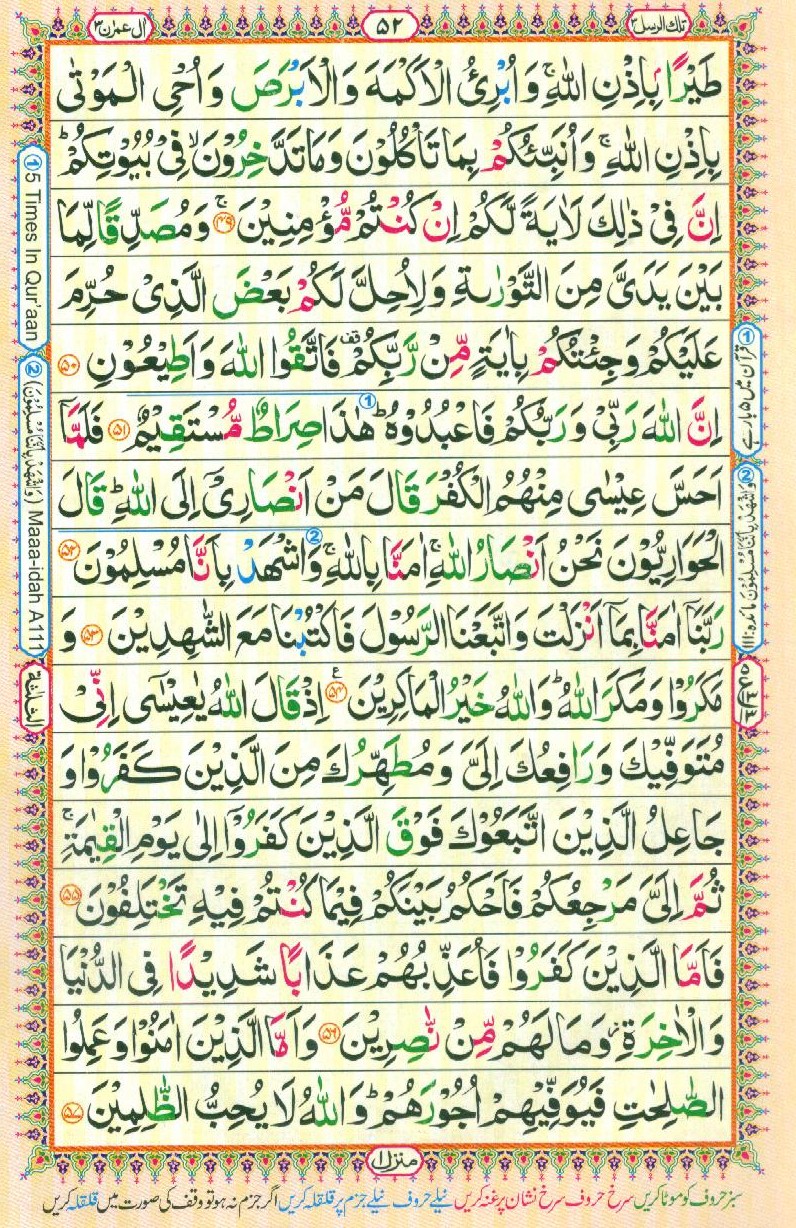 تلك الرسل ۳
۵۲
ال عمرٰن ۳
طَيْرًۢا بِاِذْنِ اللّٰهِ ۚ وَاُبْرِئُ الْاَكْمَهَ وَالْاَبْرَصَ وَاُحْیِ الْمَوْتٰى
بِاِذْنِ اللّٰهِ ۚ وَاُنَبِّئُكُمْ بِمَا تَاْكُلُوْنَ وَمَا تَدَّخِرُوْنَ ۙ فِیْ بُيُوْتِكُمْ ؕ
اِنَّ فِیْ ذٰلِكَ لَاٰيَةً لَّكُمْ اِنْ كُنْتُمْ مُّؤْمِنِيْنَ ۚ ﴿۴۹﴾ وَمُصَدِّقًا لِّمَا
بَيْنَ يَدَیَّ مِنَ التَّوْرٰىةِ وَلِاُحِلَّ لَكُمْ بَعْضَ الَّذِیْ حُرِّمَ
عَلَيْكُمْ وَجِئْتُكُمْ بِاٰيَةٍ مِّنْ رَّبِّكُمْ ۫ فَاتَّقُوا اللّٰهَ وَاَطِيْعُوْنِ ﴿۵۰﴾
اِنَّ اللّٰهَ رَبِّیْ وَرَبُّكُمْ فَاعْبُدُوْهُ ؕ هٰذَا صِرَاطٌ مُّسْتَقِيْمٌ ﴿۵۱﴾ فَلَمَّاۤ
اَحَسَّ عِيْسٰى مِنْهُمُ الْكُفْرَ قَالَ مَنْ اَنْصَارِیْۤ اِلَى اللّٰهِ ؕ قَالَ
الْحَوَارِيُّوْنَ نَحْنُ اَنْصَارُ اللّٰهِ ۚ اٰمَنَّا بِاللّٰهِ ۚ وَاشْهَدْ بِاَنَّا مُسْلِمُوْنَ ﴿۵۲﴾
رَبَّنَاۤ اٰمَنَّا بِمَاۤ اَنْزَلْتَ وَاتَّبَعْنَا الرَّسُوْلَ فَاكْتُبْنَا مَعَ الشّٰهِدِيْنَ ﴿۵۳﴾ وَ
مَكَرُوْا وَمَكَرَ اللّٰهُ ؕ وَاللّٰهُ خَيْرُ الْمَاكِرِيْنَ ﴿۵۴﴾ ع اِذْ قَالَ اللّٰهُ يٰعِيْسٰۤى اِنِّیْ
مُتَوَفِّيْكَ وَرَافِعُكَ اِلَیَّ وَمُطَهِّرُكَ مِنَ الَّذِيْنَ كَفَرُوْا وَ
جَاعِلُ الَّذِيْنَ اتَّبَعُوْكَ فَوْقَ الَّذِيْنَ كَفَرُوْۤا اِلٰى يَوْمِ الْقِيٰمَةِ ۚ
ثُمَّ اِلَیَّ مَرْجِعُكُمْ فَاَحْكُمُ بَيْنَكُمْ فِيْمَا كُنْتُمْ فِيْهِ تَخْتَلِفُوْنَ ﴿۵۵﴾
فَاَمَّا الَّذِيْنَ كَفَرُوْا فَاُعَذِّبُهُمْ عَذَابًا شَدِيْدًا فِی الدُّنْيَا
وَالْاٰخِرَةِ ؗ وَمَا لَهُمْ مِّنْ نّٰصِرِيْنَ ﴿۵۶﴾ وَاَمَّا الَّذِيْنَ اٰمَنُوْا وَعَمِلُوا
الصّٰلِحٰتِ فَيُوَفِّيْهِمْ اُجُوْرَهُمْ ؕ وَاللّٰهُ لَا يُحِبُّ الظّٰلِمِيْنَ ﴿۵۷﴾
① قرآن میں ۵ بار ہے
② وَاشْهَدْ بِاَنَّنَا مُسْلِمُوْنَ مائدہ:۱۱۱
① 5 Times In Qur'aan
② (وَاشْهَدْ بِاَنَّنَا مُسْلِمُوْنَ) Maaa-idah A111
الثلثة
منزل ۱
سبز حروف کو موٹا کریں سرخ حروف سرخ نشان پر غنہ کریں نیلے حروف نیلے جزم پر قلقلہ کریں اگر جزم نہ ہو تو وقف کی صورت میں قلقلہ کریں